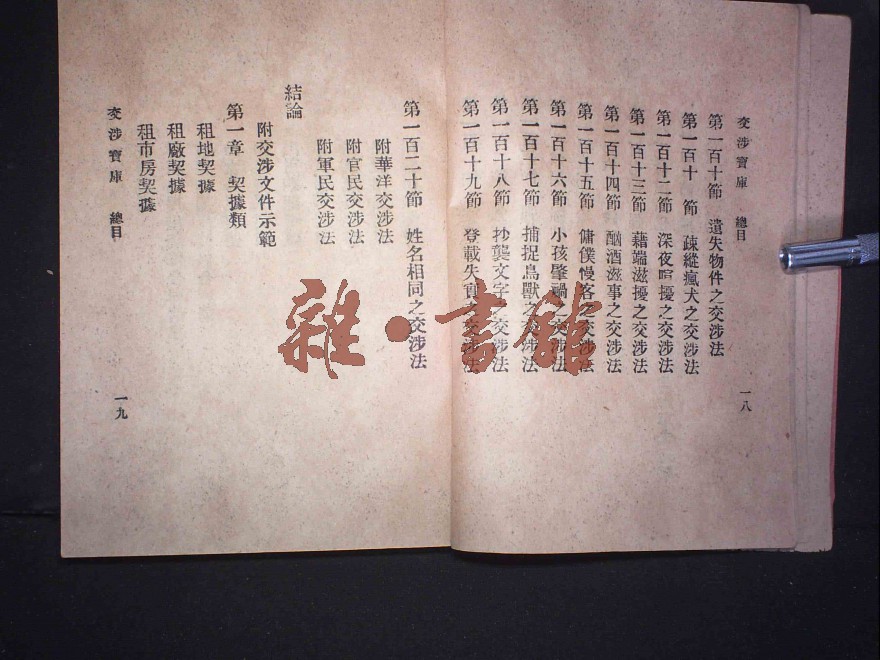 交涉寶庫　總目
第一百十節　遺失物件之交涉法
第一百十一節　疎縱瘋犬之交涉法
第一百十二節　深夜喧擾之交涉法
第一百十三節　藉端滋擾之交涉法
第一百十四節　酗酒滋事之交涉法
第一百十五節　傭僕慢客之交涉法
第一百十六節　小孩肇禍之交涉法
第一百十七節　捕捉鳥獸之交涉法
第一百十八節　抄襲文字之交涉法
第一百十九節　登載失實之交涉法
一八
第一百二十節　姓名相同之交涉法
附華洋交涉法
附官民交涉法
附軍民交涉法
結論
附交涉文件示範
第一章　契據類
租地契據
租廠契據
租市房契據
交涉寶庫　總目
一九
雜·書館